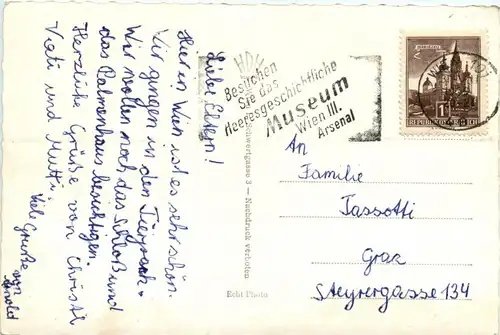 Liebe Eltern!
Hier in Wien ist es sehr schön.
Wir gingen in den Tierpark.
Wir wollen noch das Schloß und
das Palmenhaus besichtigen.
Herzliche Grüße von Christl
Vati und Mutti.
Viele Grüße von
Besuchen
Sie das
Heeresgeschichtliche
Museum
Wien III.
Arsenal
REPUBLIK
An
Familie
Tassotti
Graz
Steyrergasse 134
Nachdruck verboten
Echt Photo